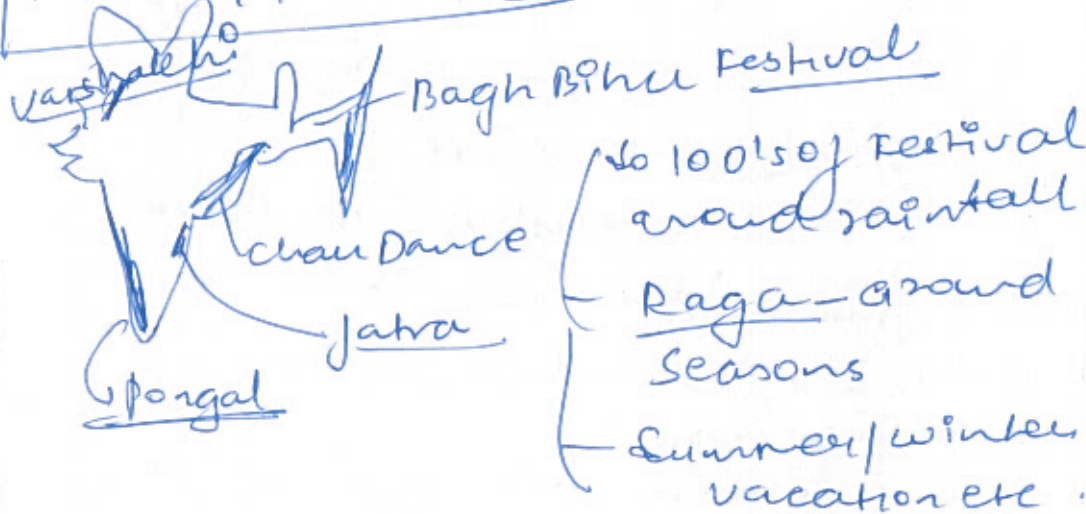 Varshakhi
Bagh Bihu Festival
Chau Dance
Jatra
Pongal
do 100's of Festival
around rainfall
- Raga - around
Seasons
- Summer/winter
vacation etc.